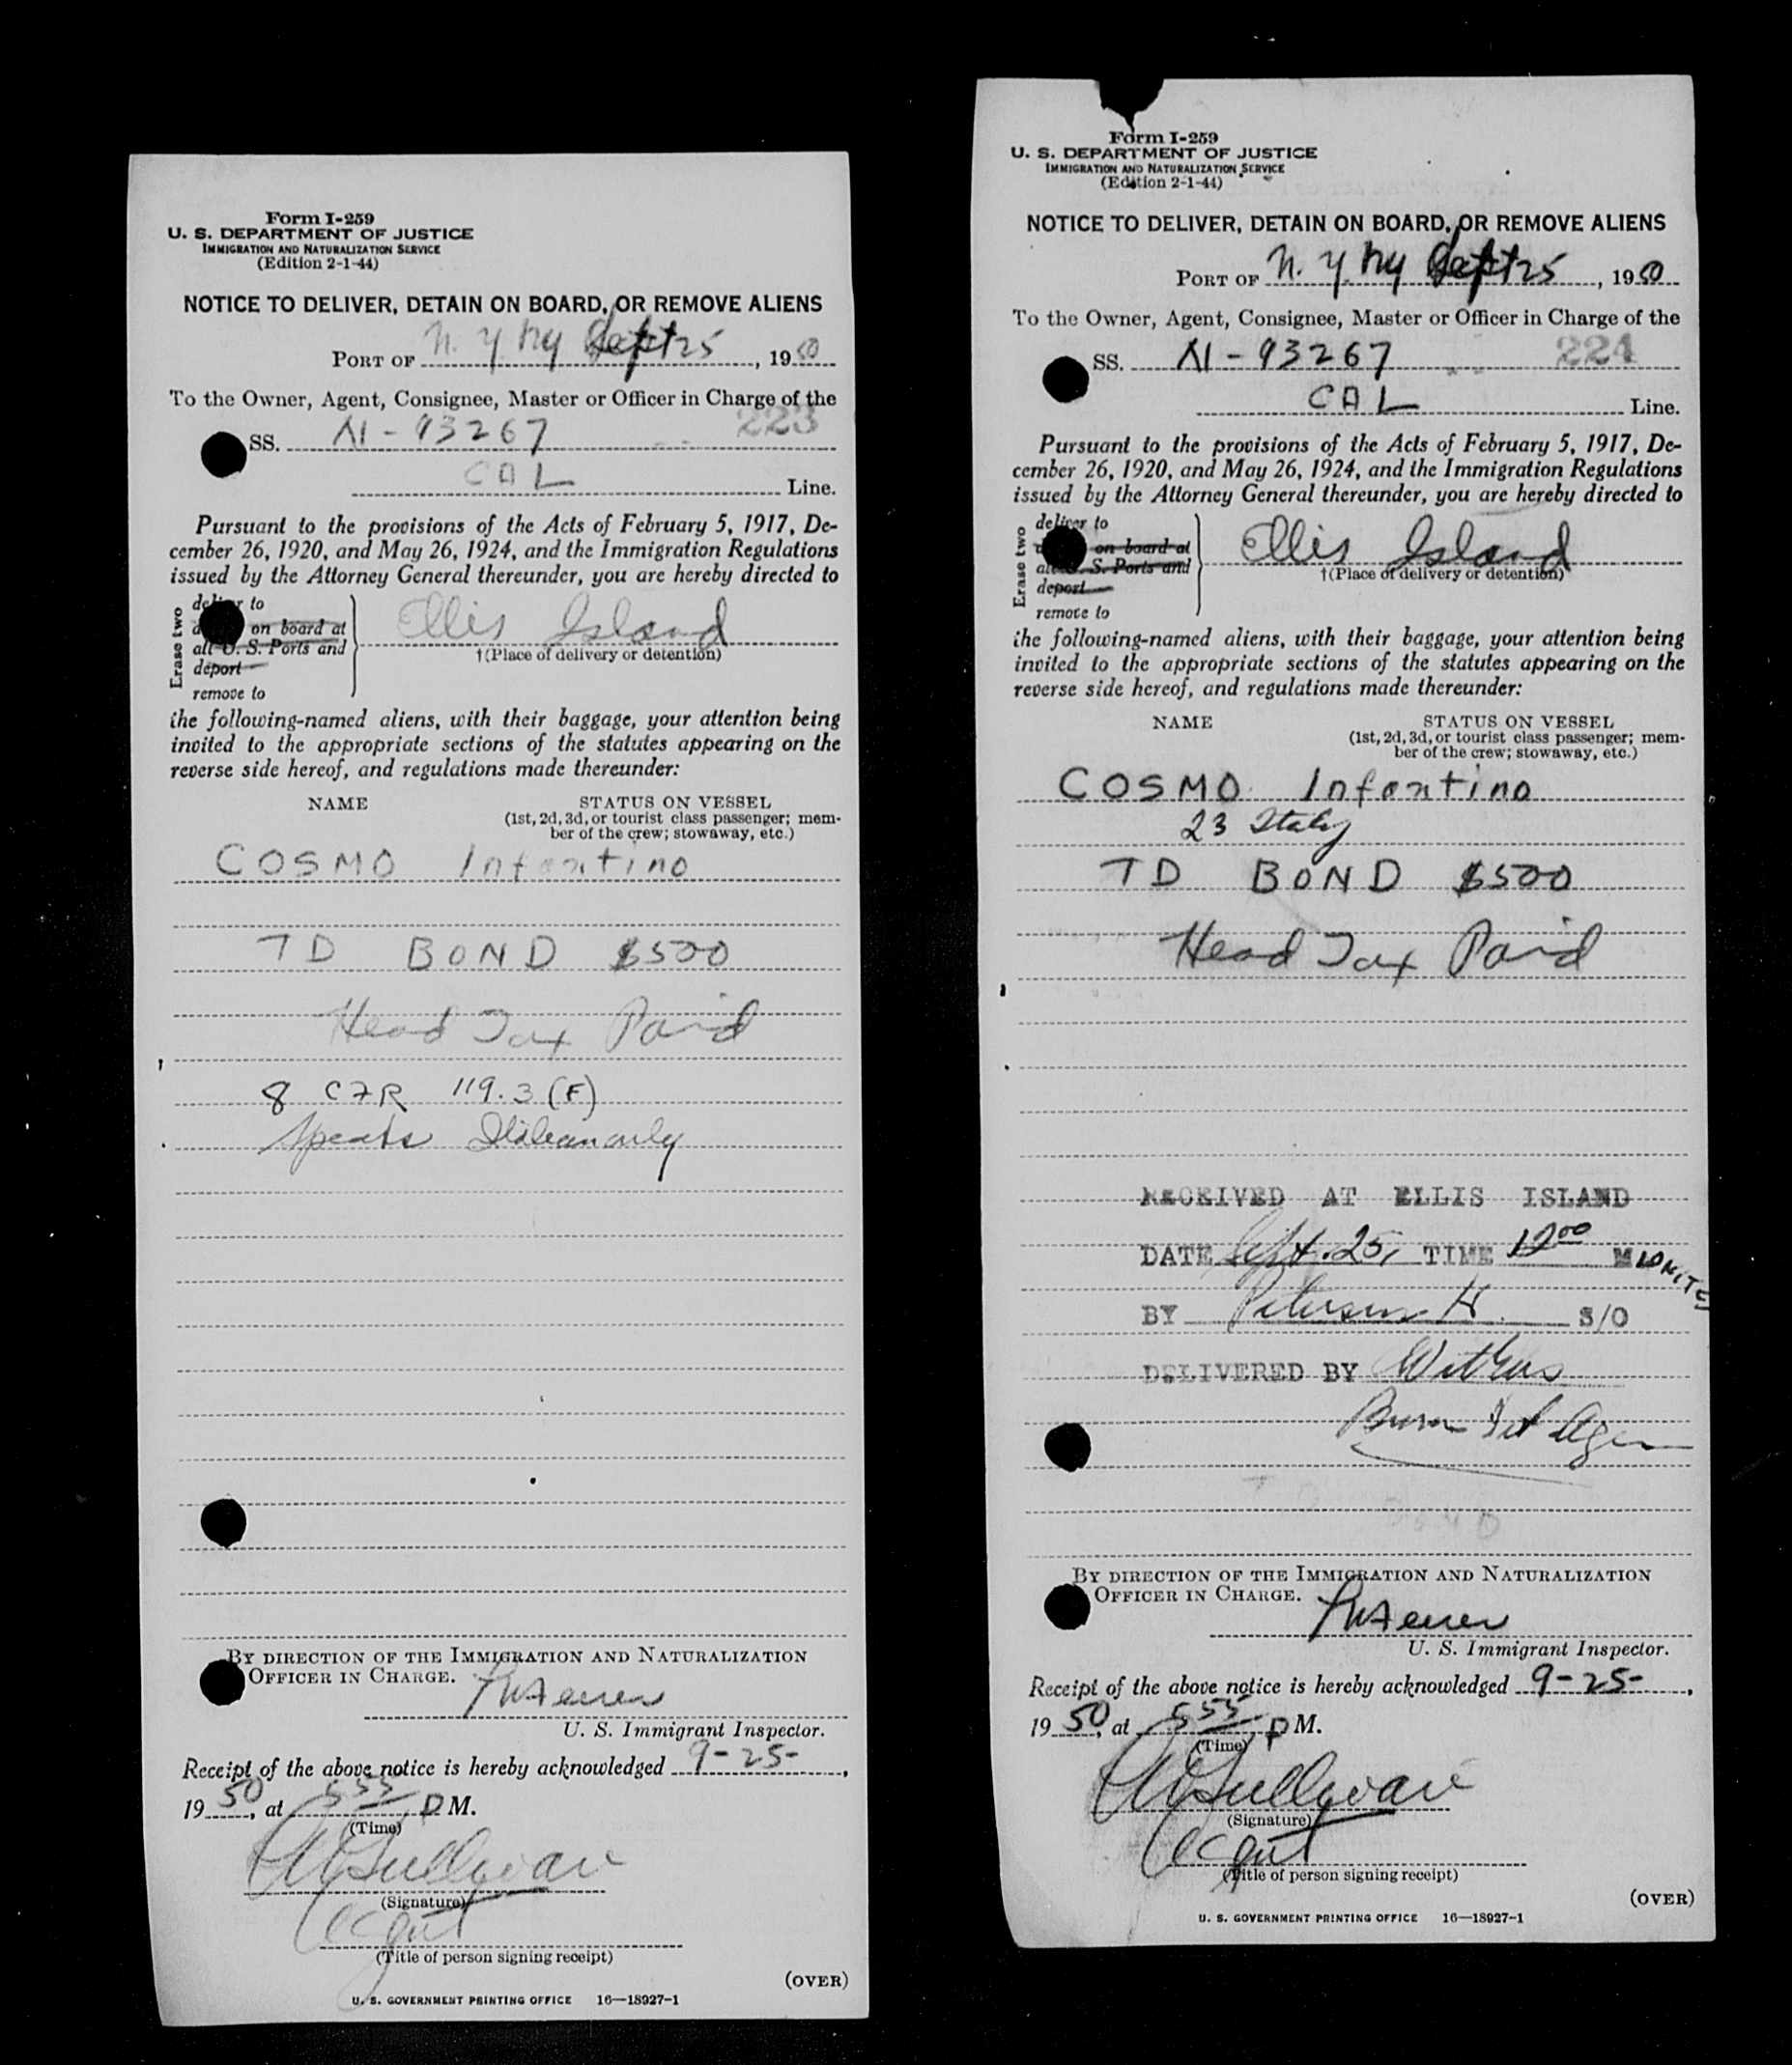 Form I-259
U. S. DEPARTMENT OF JUSTICE
IMMIGRATION AND NATURALIZATION SERVICE
(Edition 2-1-44)
NOTICE TO DELIVER, DETAIN ON BOARD, OR REMOVE ALIENS
PORT OF N. Y. NY Sept 25, 1950
To the Owner, Agent, Consignee, Master or Officer in Charge of the
223
SS. N1-93267
CAL Line.
Pursuant to the provisions of the Acts of February 5, 1917, De-
cember 26, 1920, and May 26, 1924, and the Immigration Regulations
issued by the Attorney General thereunder, you are hereby directed to
Erase two
deliver to
on board at
all U. S. Ports and
deport
remove to
Ellis Island
†(Place of delivery or detention)
the following-named aliens, with their baggage, your attention being
invited to the appropriate sections of the statutes appearing on the
reverse side hereof, and regulations made thereunder:
NAME STATUS ON VESSEL
(1st, 2d, 3d, or tourist class passenger; mem-
ber of the crew; stowaway, etc.)
COSMO Infantino
TD BOND $500
Head Tax Paid
8 CFR 119.3 (F)
Speaks Italian only
BY DIRECTION OF THE IMMIGRATION AND NATURALIZATION
OFFICER IN CHARGE.
U. S. Immigrant Inspector.
Receipt of the above notice is hereby acknowledged 9-25-,
1950, at 555 P M.
(Time)
Sullivan
(Signature)
Agent
(Title of person signing receipt)
(OVER)
U. S. GOVERNMENT PRINTING OFFICE 16—18927-1
Form I-259
U. S. DEPARTMENT OF JUSTICE
IMMIGRATION AND NATURALIZATION SERVICE
(Edition 2-1-44)
NOTICE TO DELIVER, DETAIN ON BOARD, OR REMOVE ALIENS
PORT OF N. Y. NY Sept 25, 1950
To the Owner, Agent, Consignee, Master or Officer in Charge of the
SS. N1-93267 224
CAL Line.
Pursuant to the provisions of the Acts of February 5, 1917, De-
cember 26, 1920, and May 26, 1924, and the Immigration Regulations
issued by the Attorney General thereunder, you are hereby directed to
Erase two
deliver to
on board at
all U. S. Ports and
deport
remove to
Ellis Island
†(Place of delivery or detention)
the following-named aliens, with their baggage, your attention being
invited to the appropriate sections of the statutes appearing on the
reverse side hereof, and regulations made thereunder:
NAME STATUS ON VESSEL
(1st, 2d, 3d, or tourist class passenger; mem-
ber of the crew; stowaway, etc.)
COSMO Infantino
23 Italy
TD BOND $500
Head Tax Paid
RECEIVED AT ELLIS ISLAND
DATE Sept. 25, TIME 12 00 MIDNITE
BY Peterson H. S/O
DELIVERED BY
Agen
BY DIRECTION OF THE IMMIGRATION AND NATURALIZATION
OFFICER IN CHARGE.
U. S. Immigrant Inspector.
Receipt of the above notice is hereby acknowledged 9-25-,
1950, at 555 P M.
(Time)
Sullivan
(Signature)
Agent
(Title of person signing receipt)
(OVER)
U. S. GOVERNMENT PRINTING OFFICE 16—18927-1